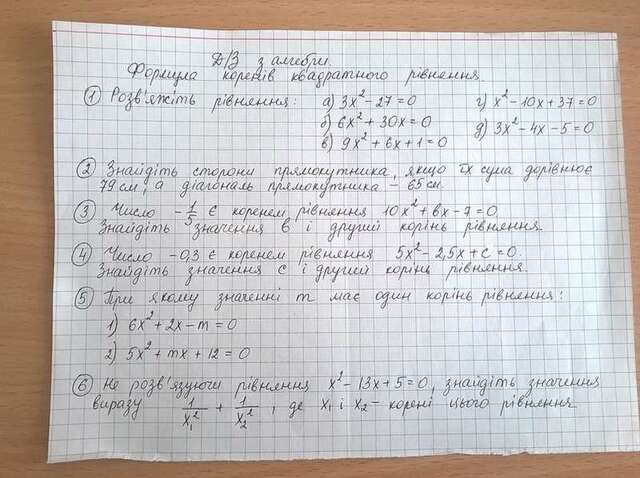 Д/З з алгебри.
Формула коренів квадратного рівняння
① Розв'яжіть рівняння: а) 3x² - 27 = 0 г) x² - 10x + 37 = 0
б) 6x² + 30x = 0 д) 3x² - 4x - 5 = 0
в) 9x² + 6x + 1 = 0
② Знайдіть сторони прямокутника, якщо їх сума дорівнює
79 см, а діагональ прямокутника - 65 см.
③ Число -1/5 є коренем рівняння 10x² + вx - 7 = 0.
Знайдіть значення в і другий корінь рівняння.
④ Число -0,3 є коренем рівняння 5x² - 2,5x + c = 0.
Знайдіть значення c і другий корінь рівняння.
⑤ При якому значенні m має один корінь рівняння:
1) 6x² + 2x - m = 0
2) 5x² + mx + 12 = 0
⑥ Не розв'язуючи рівняння x² - 13x + 5 = 0, знайдіть значення
виразу 1/x₁² + 1/x₂², де x₁ і x₂ - корені цього рівняння